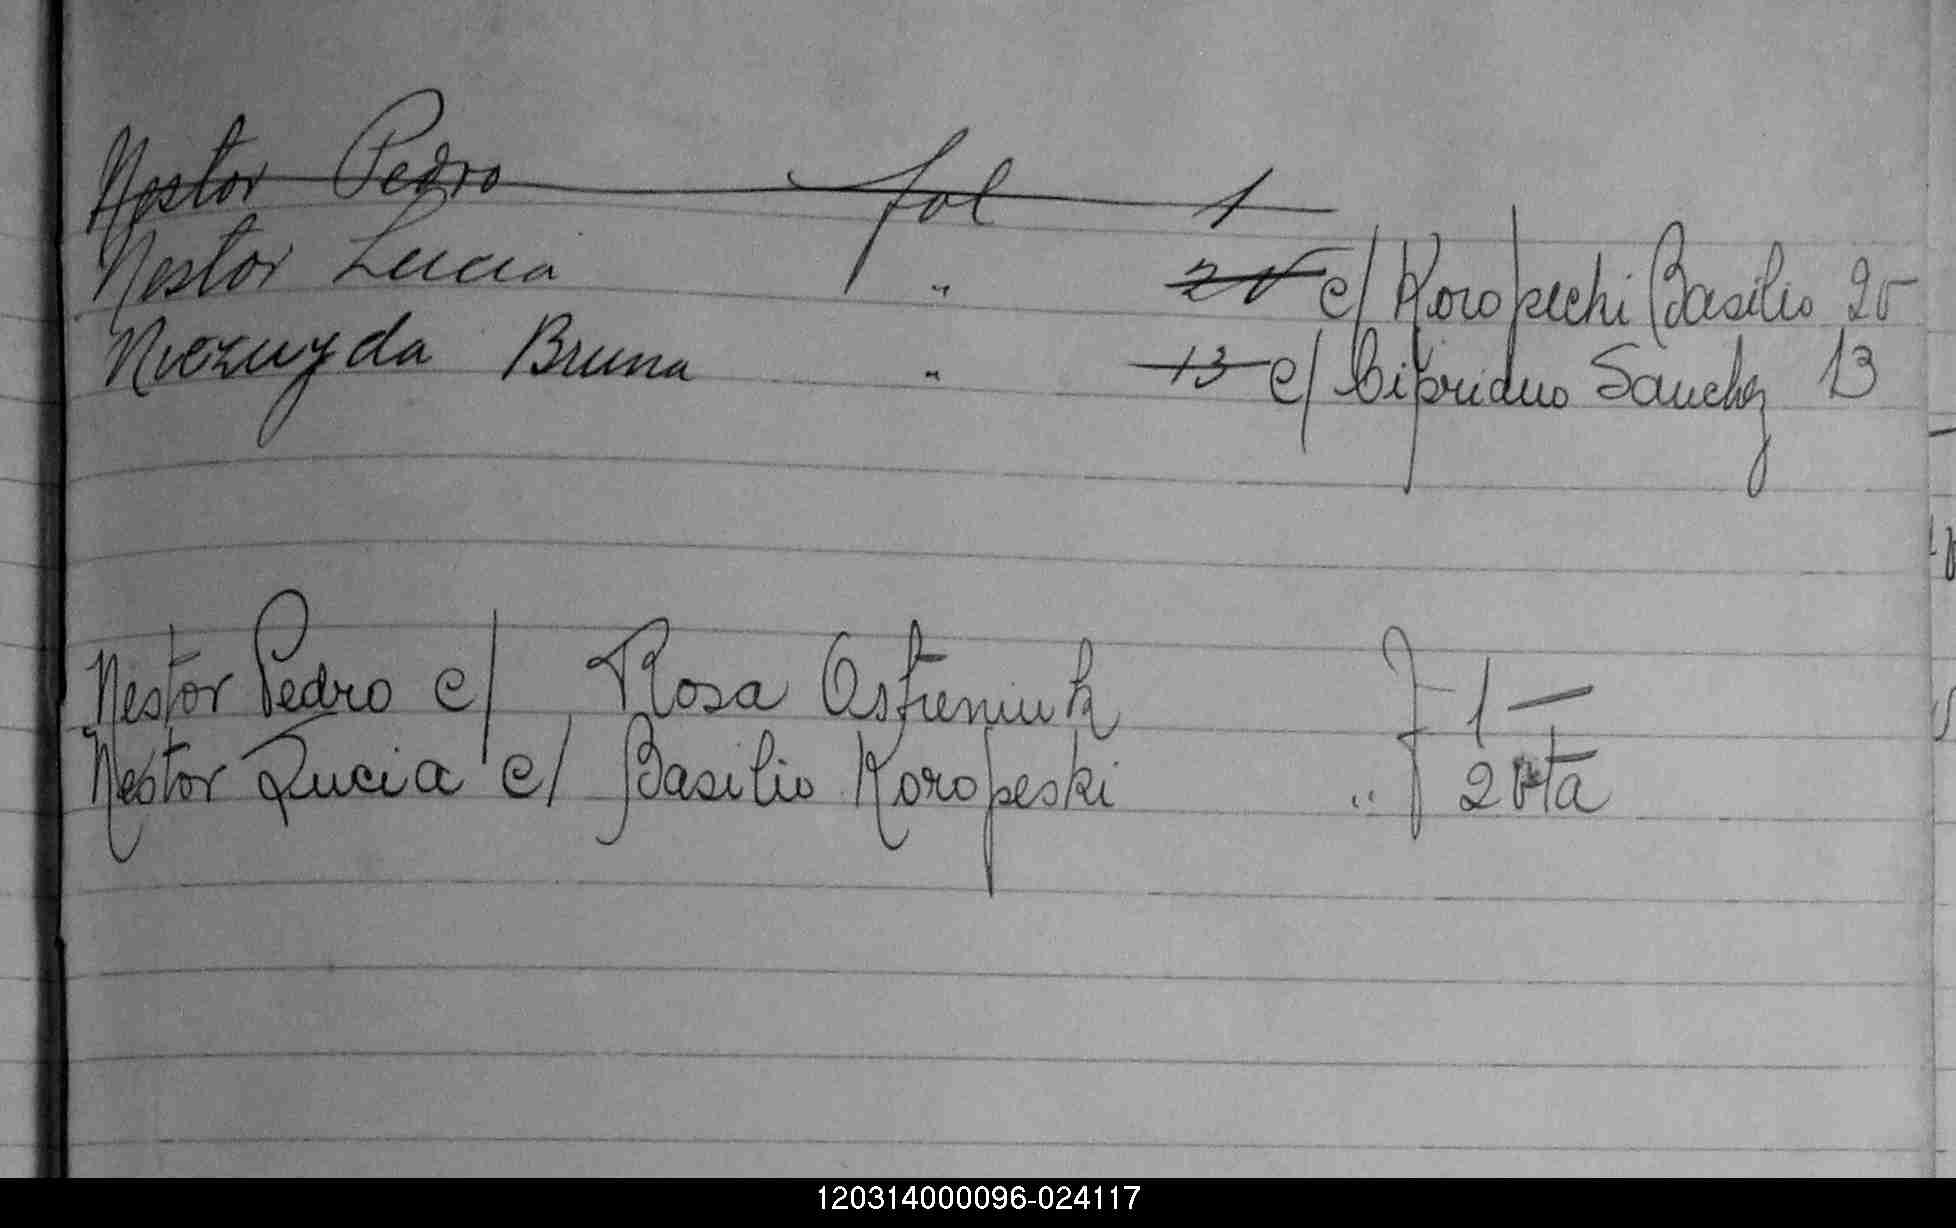 Nestor Pedro fol 1
Nestor Lucia " 2v c/ Koropechi Basilio 2v
Niezuyda Bruna " 13 c/ Cipriano Sanchez 13
Nestor Pedro c/ Rosa Ostreniuk F 1 —
Nestor Lucia c/ Basilio Koropeski " F 2 vta
120314000096-024117